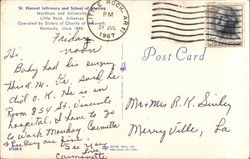 St. Vincent Infirmary and School of Nursing
Markham and University
Little Rock, Arkansas
Operated by Sisters of Charity of Nazareth,
Kentucky, since 1888.
LITTLE ROCK, ARK.
PM
1967
Post Card
Friday
noon
Hi
Baby had his surgery
this A.M. Dr. said he
did O.K. He is in
Room 854 St. Vincents
hospital. I have to go
to work Monday.
& are fine.
See you
Love
Mr & Mrs R. K.
Merryville, La